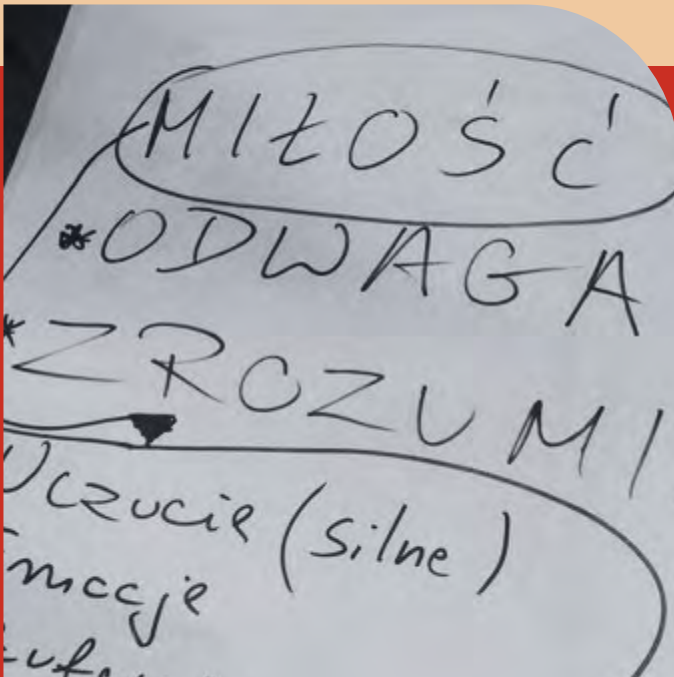 MIŁOŚĆ
*ODWAGA
*ZROZUMI
Uczucie (silne)